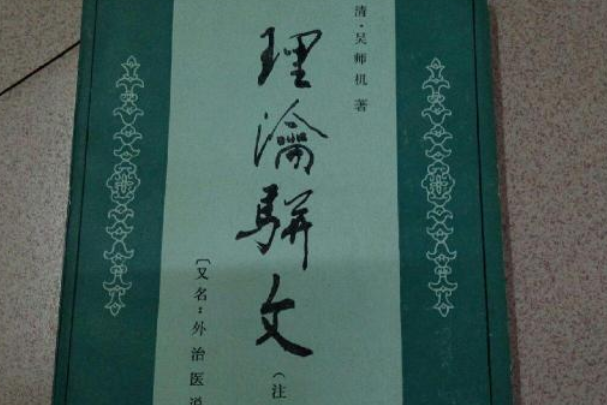 清·吴师机著
理瀹骈文
(注
〔又名：外治医说